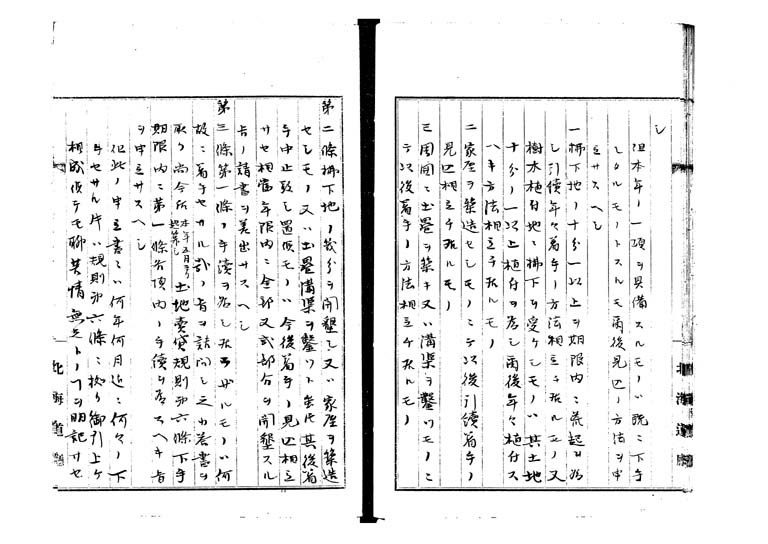 シ
但本年ノ一項ヲ具備スルモノハ既ニ下手
シタルモノトスルモ爾後見込ノ方法ヲ申
立サスヘシ
一拂下地ノ十分一以上ヲ期限内ニ荒起ヲ為
シ引續年々着手ノ方法相立チ居ルモノ又
樹木植付地ニ拂下ヲ受ケシモノハ其土地
十分ノ一以上植付ヲ為シ爾後年々植付ス
ヘキ方法相立チ居ルモノ
二家屋ヲ築造セシモノニテ以後引續着手ノ
見込相立チ居ルモノ
三周囲ニ土壘ヲ築キ又ハ溝渠ヲ鑿ツモノニ
テ以後着手ノ方法相立チ居ルモノ
北海道廳
第二條拂下地ノ幾分ヲ開墾シ又ハ家屋ヲ築造
セシモノ又ハ土壘溝渠ヲ鑿ツト雖モ其後着
手中止致シ置候モノハ今後着手ノ見込相立
サセ相當年限内ニ全部又ハ部分ヲ開墾スル
旨ノ請書ヲ差出サスヘシ
第三條第一條ノ手續ヲ為シ居ラサルモノハ何
故ニ着手セサル哉ノ旨ヲ詰問シ之カ答書ヲ
取リ尚今所本年五月ヨリ起算シ土地賣貸規則第六條下手
期限内ニ第一條各項内ノ手續ヲ為スヘキ旨
ヲ申立サスヘシ
但此ノ申立書ニハ何年何月迄ニ何々ノ下
手セサル片ハ規則第六條ニ拠リ御引上ケ
相成候テモ聊苦情無之トノコヲ明記サセ
北海道廳